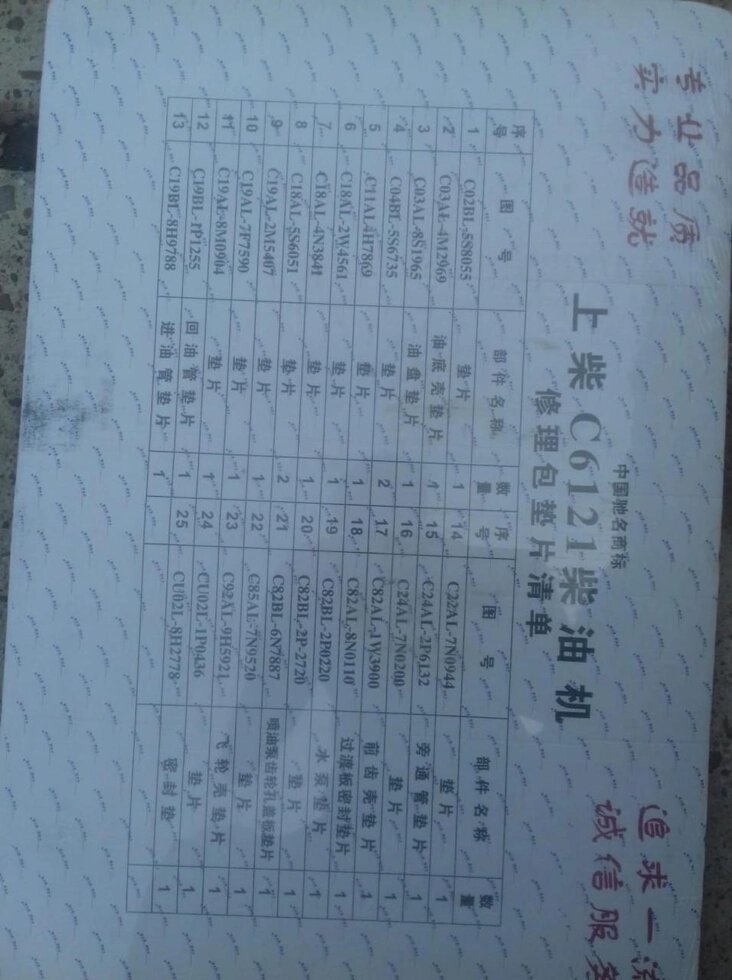 专业品质
实力造就
追求一流
诚信服务
中国驰名商标
上柴C6121柴油机
修理包垫片清单
序号 图号 部件名称 数量 序号 图号 部件名称 数量
1 C02BL-5S8055 垫片 1 14 C22AL-7N0944 垫片 1
2 C03AL-4M2969 油底壳垫片 1 15 C24AL-2P6132 旁通管垫片 1
3 C03AL-8S1965 油盘垫片 1 16 C24AL-7N0200 垫片 1
4 C04BL-5S6735 垫片 2 17 C82AL-1W3900 前齿壳垫片 1
5 C11AL-4H7869 垫片 1 18 C82AL-8N0110 过渡板密封垫片 1
6 C18AL-2W4561 垫片 1 19 C82BL-2P0220 水泵垫片 1
7 C18AL-4N3841 垫片 1 20 C82BL-2P-2720 垫片 1
8 C18AL-5S6051 垫片 2 21 C82BL-6N7887 喷油泵齿轮孔盖板垫片 1
9 C19AL-2M5407 垫片 1 22 C85AL-7N9520 垫片 1
10 C19AL-7F7590 垫片 1 23 C92AL-9H5921 飞轮壳垫片 1
11 C19AL-8M0904 垫片 1 24 CU02L-1P0436 垫片 1
12 C19BL-1P1255 回油管垫片 1 25 CU02L-8H2778 密封垫 1
13 C19BL-8H9788 进油管垫片 1